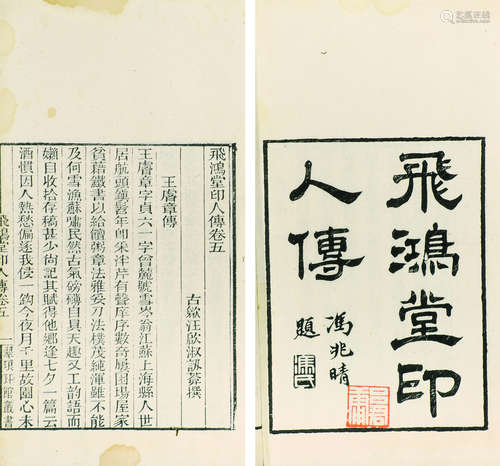 飛鴻堂印
人傳
馮兆晴
題
飛鴻堂印人傳卷五
古歙汪啟淑訒菴撰
王睿章傳
王睿章字貞六一字曾麓號雪岑翁江蘇上海縣人世
居航頭鎮髫年卽采泮芹有聲庠序數奇屢困場屋家
貧藉鐵書以給饘粥章法雅妥刀法樸茂純渾雖不能
及何雪漁蘇嘯民然古氣磅礴自具天趣又工韻語而
嬾自收拾存稿甚少尚記其賦得他鄉逢七夕一篇云
酒慣因人熱愁偏逐我侵一鉤今夜月千里故園心未
飛鴻堂印人傳卷五 一 翠琅玕館叢書